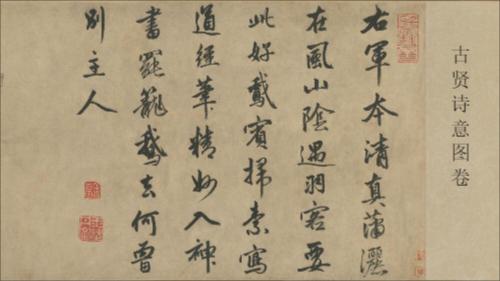 古贤诗意图卷
右軍本清真瀟灑
在風山陰遇羽客要
此好鵞賓掃素寫
道經筆精妙入神
書罷籠鵞去何曾
別主人